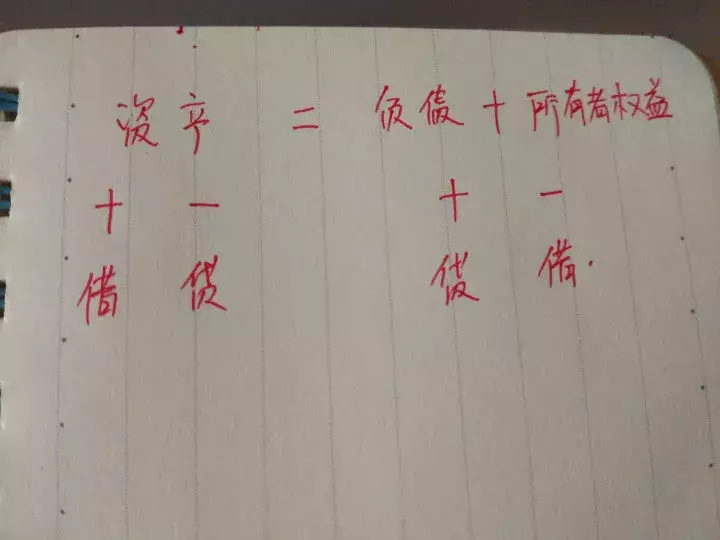 资产 = 负债 + 所有者权益
+ - + -
借 贷 贷 借.